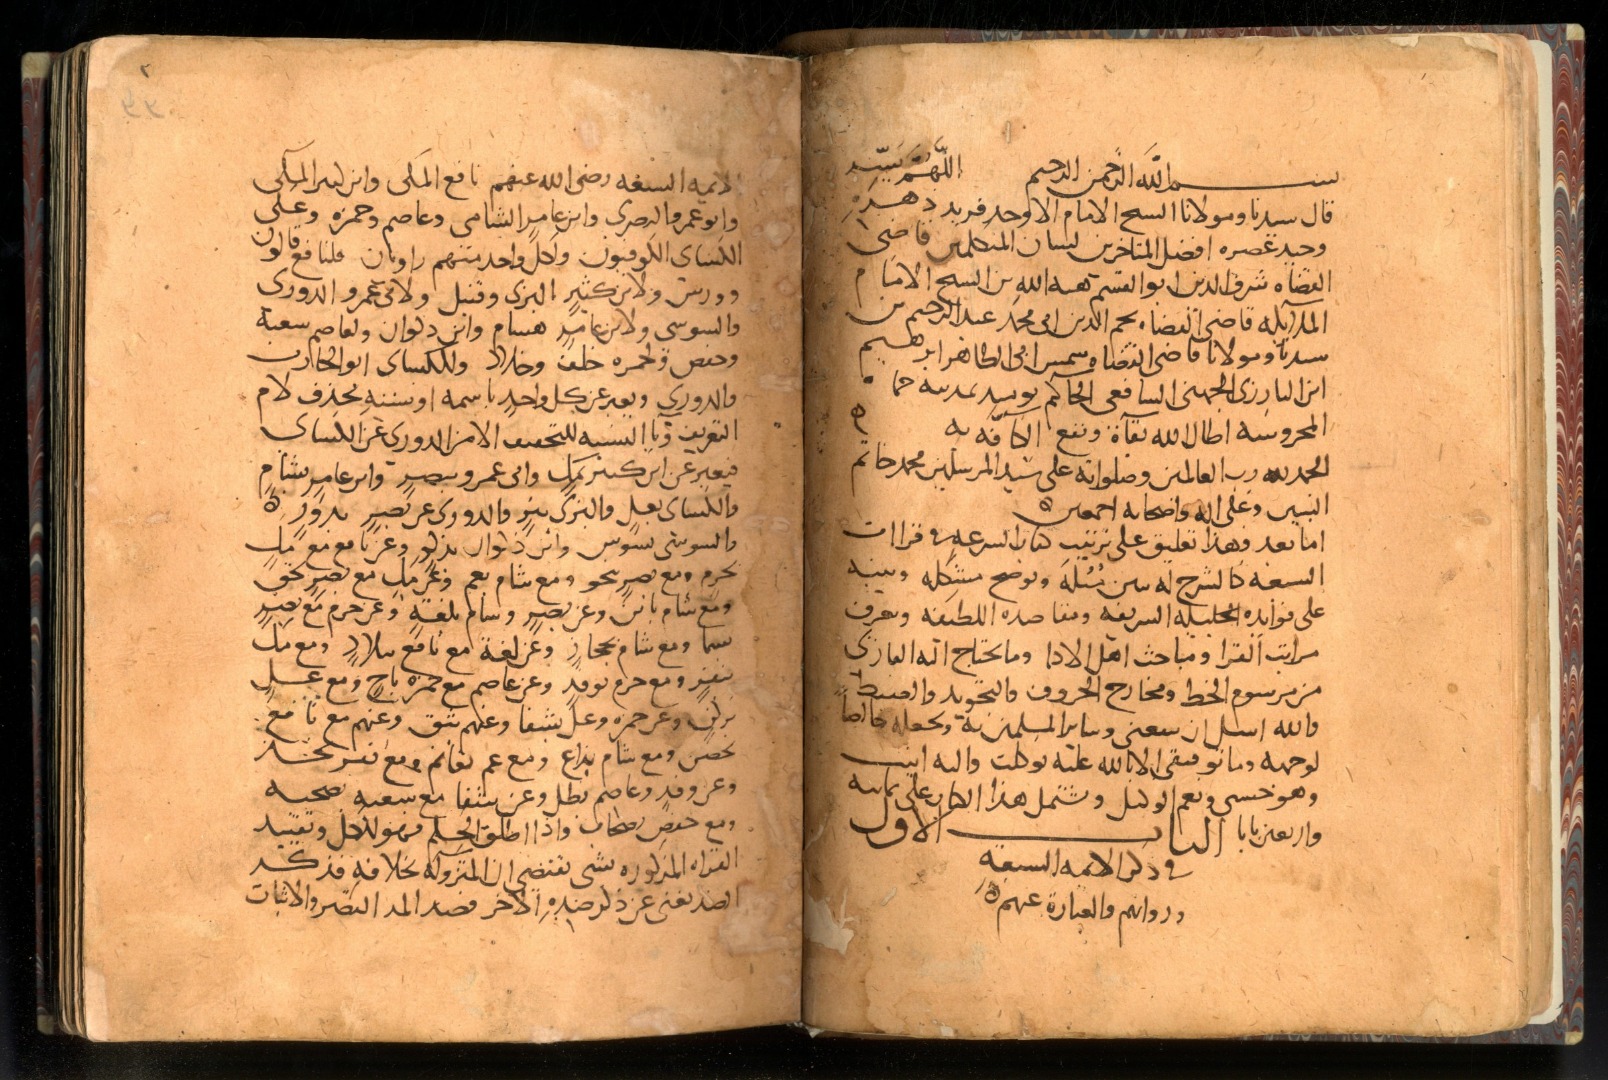 بسم الله الرحمن الرحيم اللهم يسر
قال سيدنا ومولانا الشيخ الامام الاوحد فريد دهره
وحيد عصره افضل المتاخرين لسان المتكلمين قاضي
القضاه شرف الدين ابو القسم هبه الله بن الشيخ الامام
قاضي القضاه نجم الدين ابي محمد عبد الرحيم بن
سيدنا ومولانا قاضي القضاه شمس ابي الطاهر ابرهيم
ابن البارزي الجهني الشافعي الحاكم يوميد بمدينه حما
المحروسه اطال الله بقاه ونفع الكافه به
الحمد لله رب العالمين وصلواته على سيد المرسلين محمد خاتم
النبيين وعلى اله واصحابه اجمعين
اما بعد وهذا تعليق على ترتيب كتاب السرعه في قراات
السبعه كالشرح له يبين ويوضح مشكله وينبه
على فوايده الجليله الشريفه ومقاصده اللطيفه ويعرف
مراتب القرا ومباحث اهل الادا وما يحتاج اليه القاري
من مرسوم الخط ومخارج الحروف والتجويد والضبط
والله اسل ان ينفعني وساير المسلمين به ويجعله خالصا
لوجهه وما توفيقي الا بالله عليه توكلت واليه انيب
وهو حسبي ونعم الوكيل ويشتمل هذا الكتاب على ثمانيه
واربعين بابا الباب الاول
في ذكر الايمه السبعه
ورواتهم والعبارة عنهم
الايمه السبعه رضي الله عنهم نافع وابن كثير المكي
وابو عمرو البصري وابن عامر الشامي وعاصم وحمزه وعلي
الكساي الكوفيون ولكل واحد منهم راويان فلنافع قالون
وورش ولابن كثير البزي وقنبل ولابي عمرو الدوري
والسوسي ولابن عامر هشام وابن ذكوان ولعاصم شعبة
وحفص ولحمزه خلف وخلاد وللكساي ابو الحارث
والدوري ويعبر عن كل واحد باسمه او نسبته بحذف لام
التعريف ويا النسبه للتخفيف الا من الدوري عن الكساي
فيعبر عن ابن كثير بمك وابي عمرو ببصر وابن عامر بشام
والكساي بعل والبزي ببز والدوري عن بصر بدور
والسوسي بسوس وابن ذكوان بذكو وعن نافع مع مك
بحرم ومع بصر بنحو ومع شام بعم وعن مك مع بصر بحق
ومع شام وعن بصر وشام وعن حرم مع بصر
سما ومع شام بحجاز وعن مع نافع ومع مك
بنفر ومع حرم وعن عاصم مع حمزه ومع عل
وعن حمزه وعل بشفا وعنهم مع نافع
بحصن ومع شام ومع عم ومع نفر
وعن وعاصم بظل وعن شفا مع شعبه بصحبه
ومع حفص بصحاب واذا اطلق الحكم فهو للكل وتقييد
القراه المذكوره بشي يقتضي ان المتروكه بخلافه فذكر
الضد يغني عن ذكر ضده الاخر فضد المد القصر والاثبات